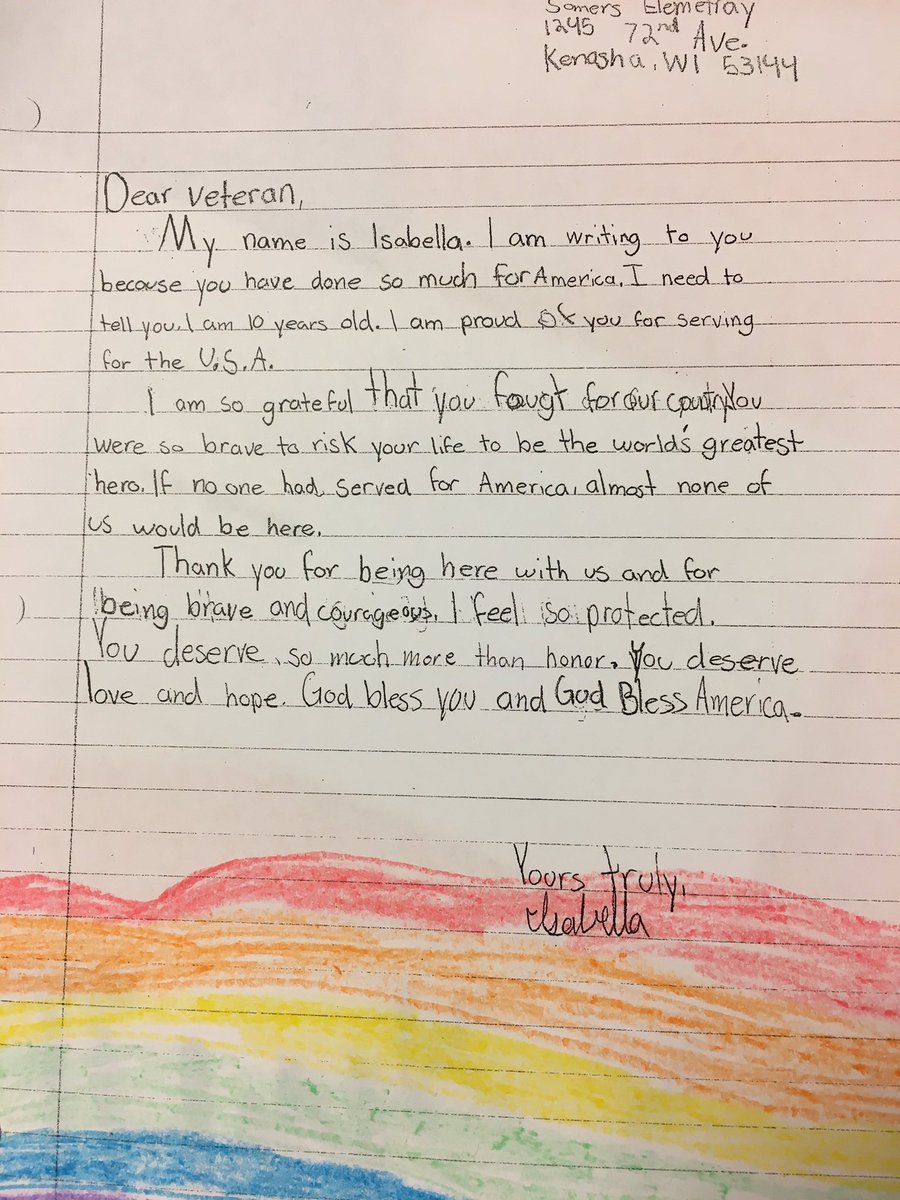 Somers Elemetray
1245 72nd Ave.
Kenosha, WI 53144
Dear Veteran,
My name is Isabella. I am writing to you
because you have done so much for America. I need to
tell you. I am 10 years old. I am proud of you for serving
for the U.S.A.
I am so grateful that you fougt for our country. You
were so brave to risk your life to be the world's greatest
hero. If no one had served for America, almost none of
us would be here.
Thank you for being here with us and for
being brave and courageous. I feel so protected.
You deserve so much more than honor. You deserve
love and hope. God bless you and God Bless America.
Yours truly,
Isabella